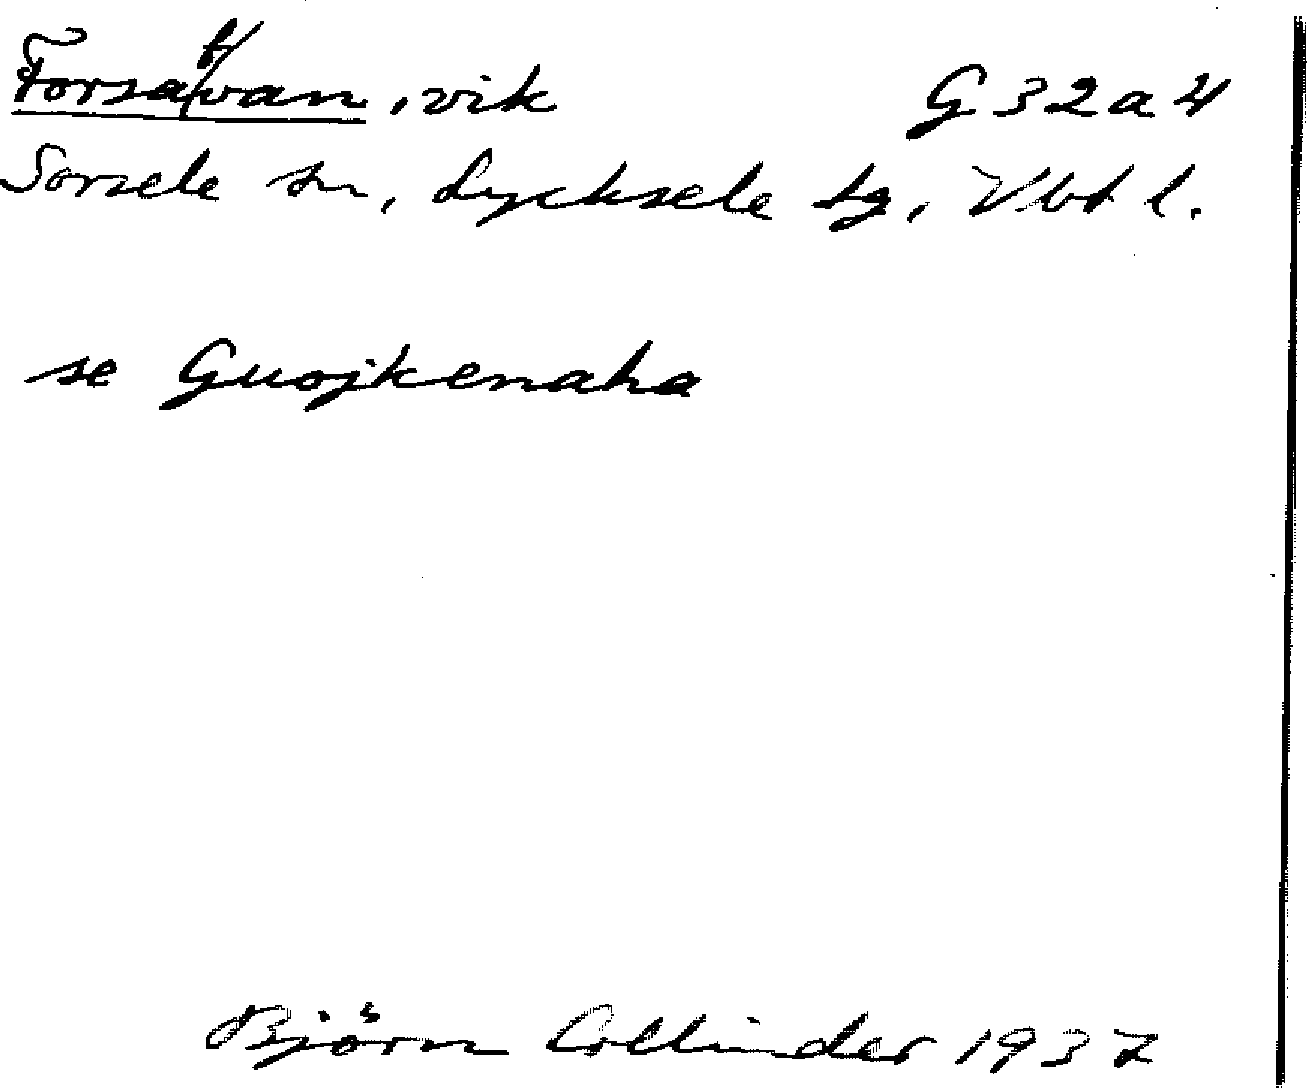 Forsafvan, vik G 32 a 4
Sorsele sn, Lycksele tg, Vbt l.
se Guojkenaha
Björn Collinder 1937